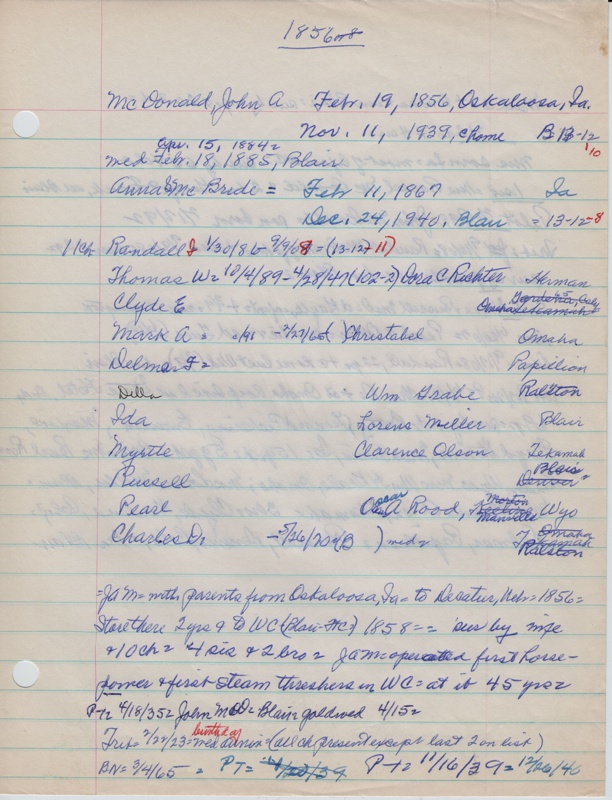 1856
McDonald, John A Febr. 19, 1856, Oskaloosa, Ia.
Nov. 11, 1939, @home B 13-12
10
Apr. 15, 1884=
med Febr. 18, 1885, Blair
Anna McBride = Febr 11, 1867 Ia
Dec. 24, 1940. Blair = 13-12-8
11ch Randall 1/30/86- (13-12-11)
Thomas W= 10/4/89-4/28/47(102-2) Ora C Richter Herman
Clyde E Gardena, Calif Omaha Tekamah
Mark A = Christabel Omaha
Delmar F= Papillion
Della + Wm Grabe Ralston
Ida Lorens Miller Blair
Myrtle Clarence Olson Tekamah
Russell Blair Denver
Pearl Oscar A Rood, Morton Manville Wyo
Charles D. -5/26/70 (B ) med= Omaha Tekamah Ralston
=JAM= with parents from Oskaloosa, Ia= to Decatur, Neb= 1856=
Stare there 2 yrs & to WC (Blair-FtC) 1858== sur by wife
+10 ch= 4 sis & 2 bro= JAM= operated first horse-
power & first steam threshers in WC= at it 45 yrs=
PT= 4/18/35= John McD= Blair= goldwed 4/15=
Trib= 2/22/23= birthday dinner= (all ch present except last 2 on list)
BN= 3/4/65 = PT= 11/20/39 PT= 11/16/39= 12/26/40